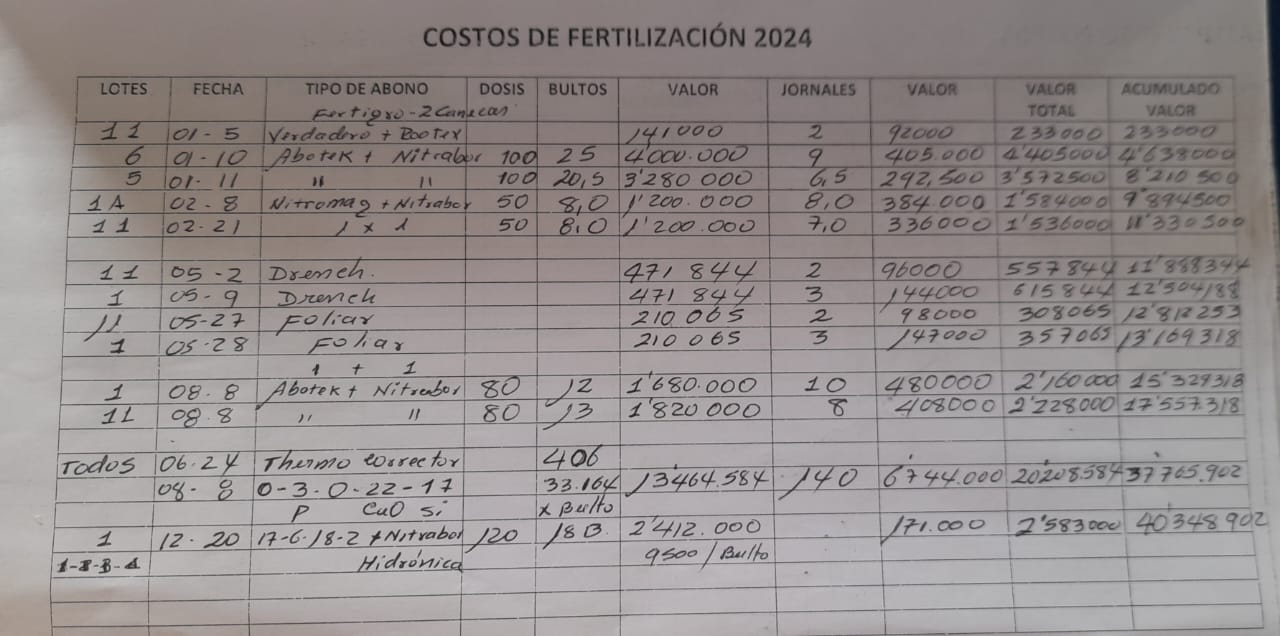 COSTOS DE FERTILIZACIÓN 2024
LOTES FECHA TIPO DE ABONO DOSIS BULTOS VALOR JORNALES VALOR VALOR TOTAL ACUMULADO VALOR
Fertigro - 2 Canecas
11 01-5 Verdadero + Rooter 141000 2 92000 233000 233000
6 01-10 Abotek + Nitrabor 100 25 4000.000 9 405.000 4'405000 4'638000
5 01-11 " " 100 20,5 3'280 000 6,5 292,500 3'572500 8'210 500
1A 02-8 Nitromag + Nitrabor 50 8,0 1'200.000 8,0 384.000 1'584000 9'894500
11 02-21 1 x 1 50 8,0 1'200.000 7,0 336000 1'536000 11'330500
11 05-2 Drench. 471 844 2 96000 557844 11'888344
1 05-9 Drench 471 844 3 144000 615844 12'504188
11 05-27 Foliar 210 065 2 98000 308065 12'812253
1 05-28 Foliar 210 065 3 147000 357065 13'169318
1 + 1
1 08.8 Abotek + Nitrabor 80 12 1'680.000 10 480000 2'160000 15'329318
11 08.8 " " 80 13 1'820 000 8 408000 2'228000 17'557.318
Todos 06.24 Thermo corrector 406
08-8 0-3-0-22-17 33.164 13'464.584 140 6'744.000 20'208.584 37'765.902
P CaO Si x Bulto
1 12.20 17-6-18-2 + Nitrabor 120 18 B. 2'412.000 171.000 2'583000 40'348902
Hidrónica 9500/Bulto